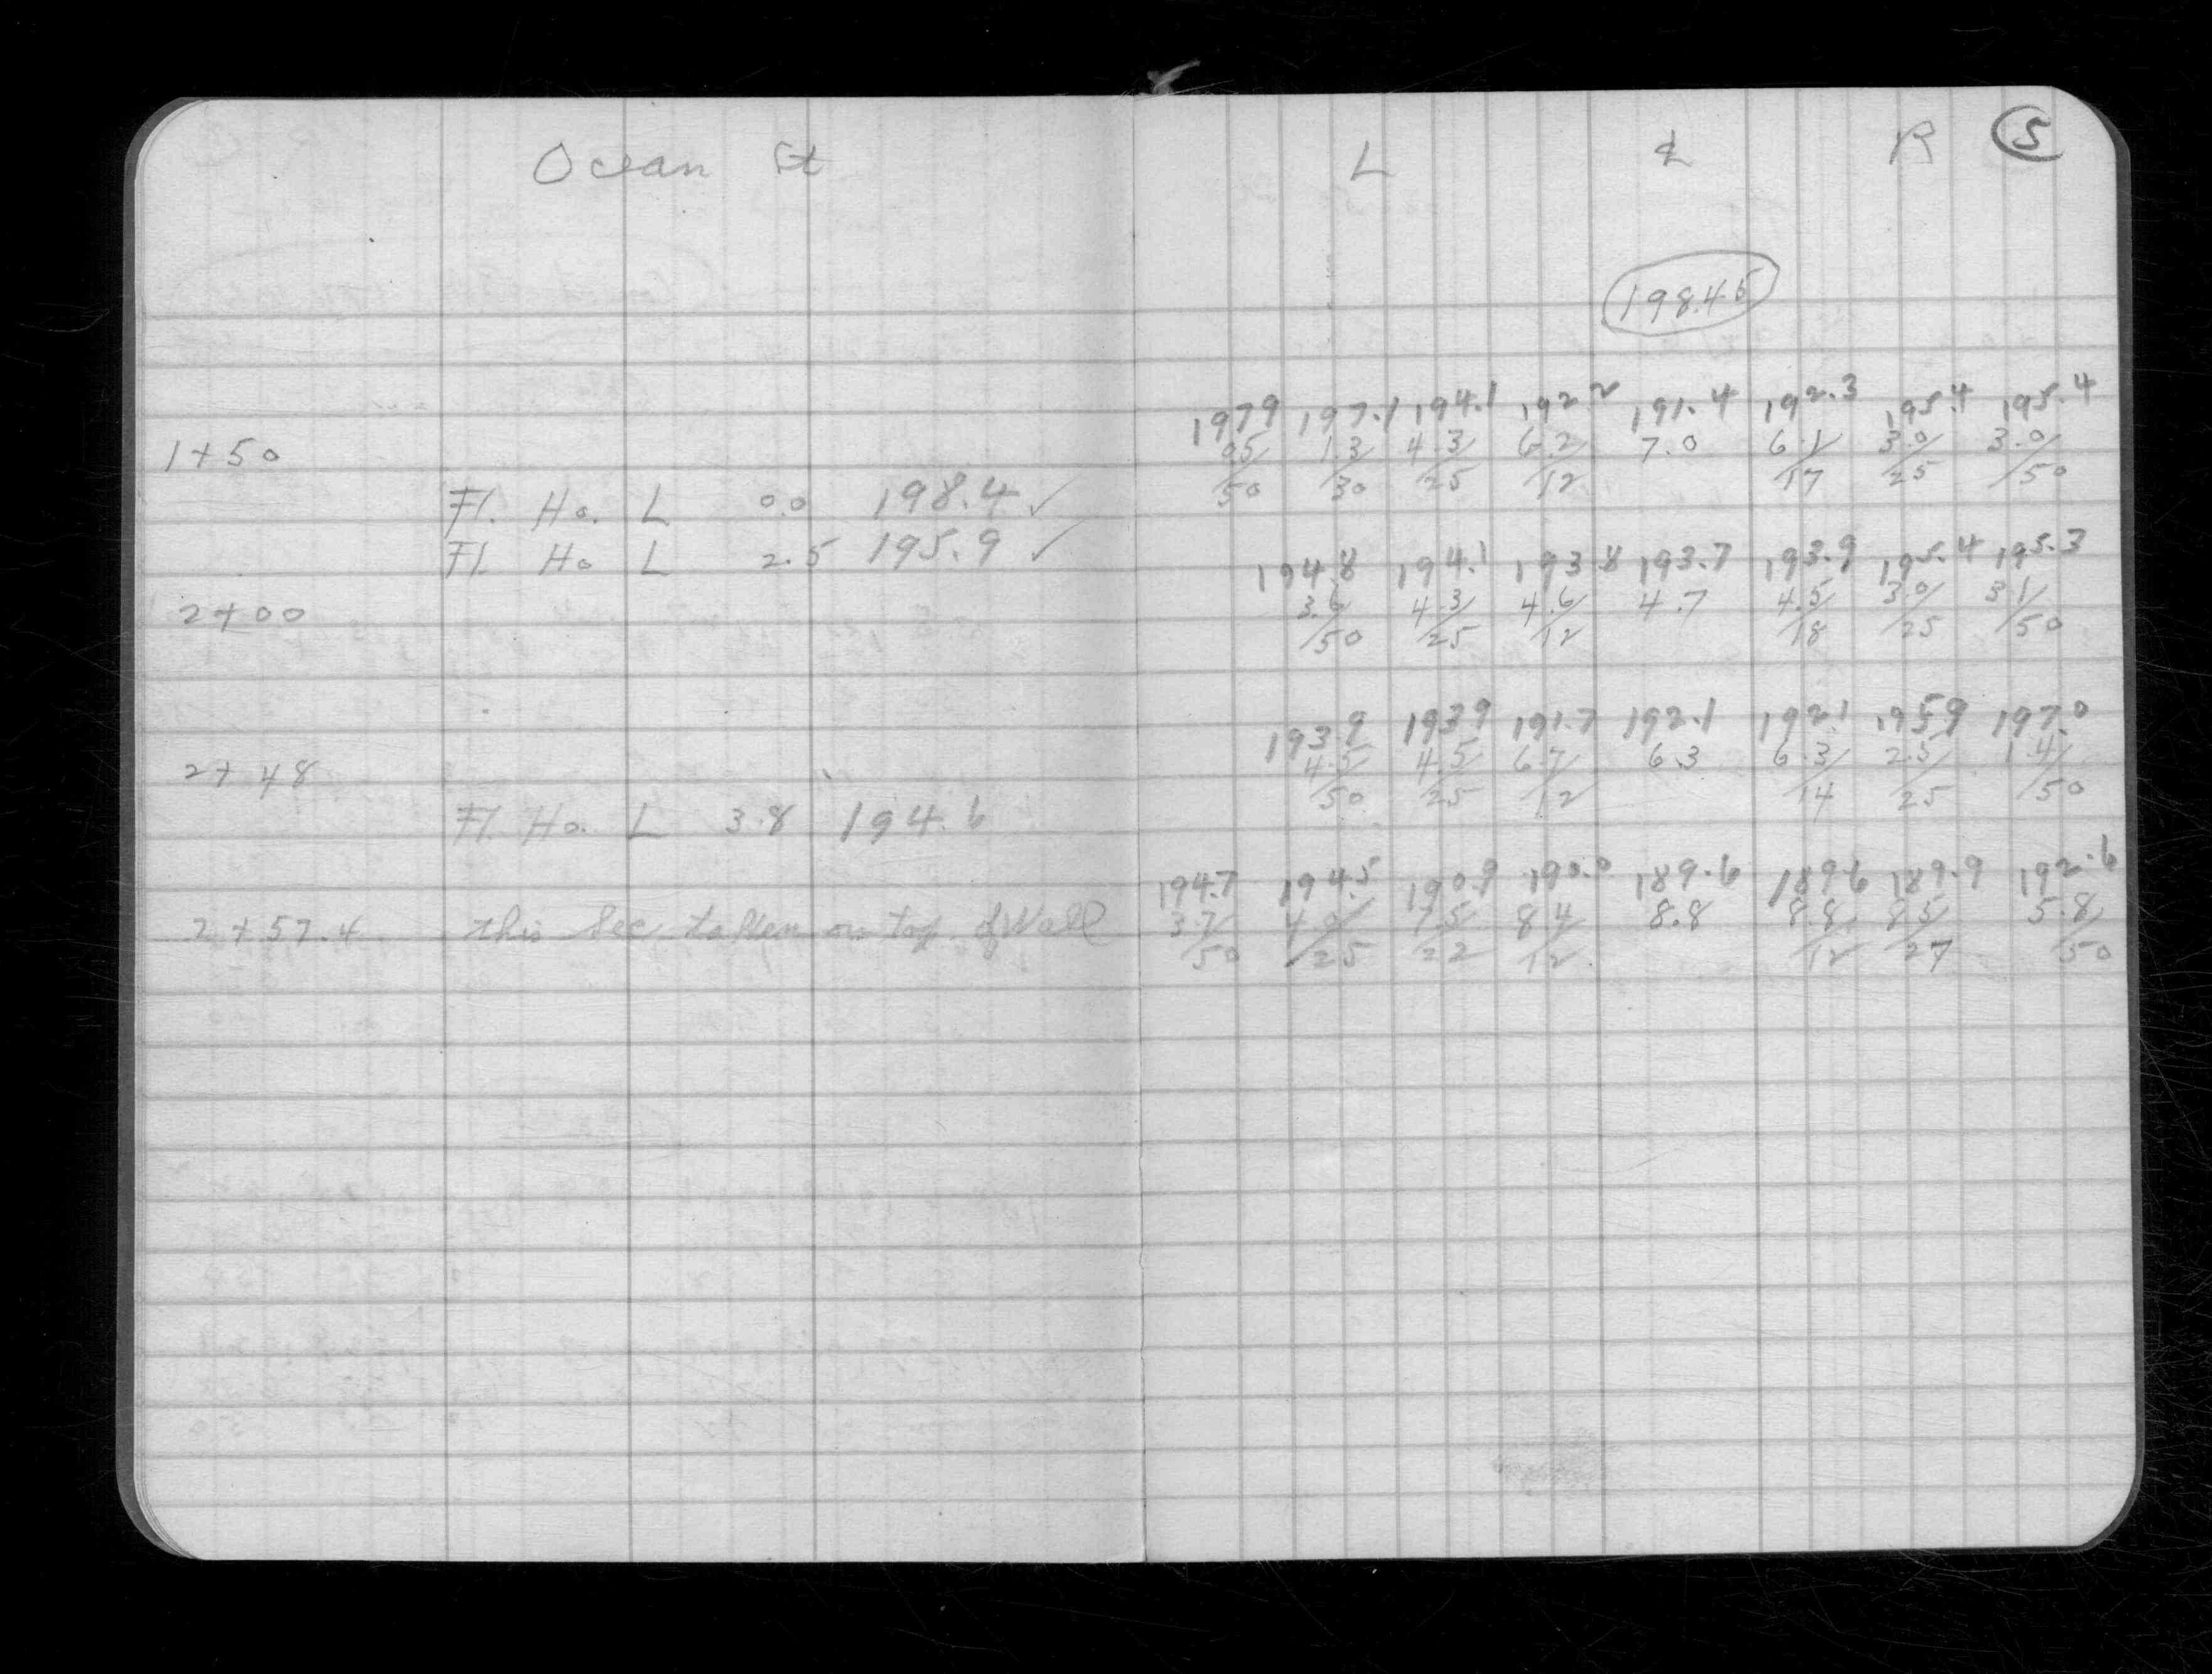 Ocean St
L ℄ R 5
198.45
197.9 197.1 194.1 192.2 191.4 192.3 195.4 195.4
1+50 0.5/50 1.3/30 4.3/25 6.2/12 7.0 6.1/17 3.0/25 3.0/50
Fl. Ho. L 0.0 198.4 ✓
Fl. Ho L 2.5 195.9 ✓
194.8 194.1 193.8 193.7 193.9 195.4 195.3
2+00 3.6/50 4.3/25 4.6/12 4.7 4.5/18 3.0/25 3.1/50
193.9 193.9 191.7 192.1 192.1 195.9 197.0
2+48 4.5/50 4.5/25 6.7/12 6.3 6.3/14 2.5/25 1.4/50
Fl. Ho. L 3.8 194.6
194.7 194.5 190.9 190.0 189.6 189.6 189.9 192.6
2+57.4 this Sec. taken on top of Wall 3.7/50 4.0/25 7.5/22 8.4/12 8.8 8.8/12 8.5/27 5.8/50